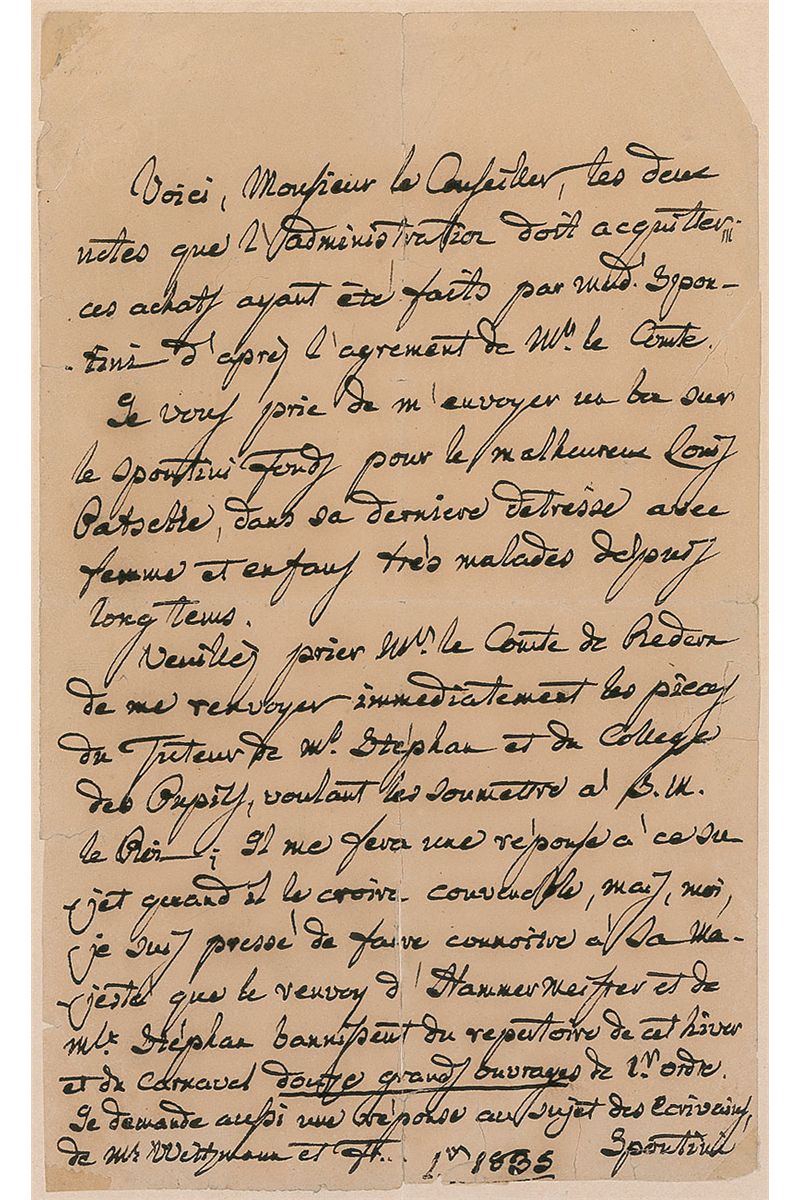 Voici, Monsieur le Conseiller, les deux
notes que l'administration doit acquitter;
ces achats ayant été faits par Mad. Spon-
tini d'après l'agrement de Mr. le Comte.
Je vous prie de m'envoyer un bon sur
le Spontini Fonds pour le malheureux Louis
dans sa derniere detresse avec
femme et enfans très malades depuis
long tems.
Veuilléz prier Mr. le Comte de Redern
de me renvoyer immediatement les pieces
du Tuteur de Mle. Stéphan et du College
des Pupils, voulant les soumettre à S. M.
le Roi; Il me fera une réponse à ce su
jet quand il le croira convenable, mais, moi,
je suis pressé de faire connoître à Sa Ma-
jesté que le renvoy d'Hammermeister et de
Mle. Stéphan bannissent du repertoire de cet hiver
et du Carnaval douze grands ouvrages de 1r. ordre.
Je demande aussi une réponse au sujet des Ecrivains,
de Mr. Weitzmann et
1835 Spontini